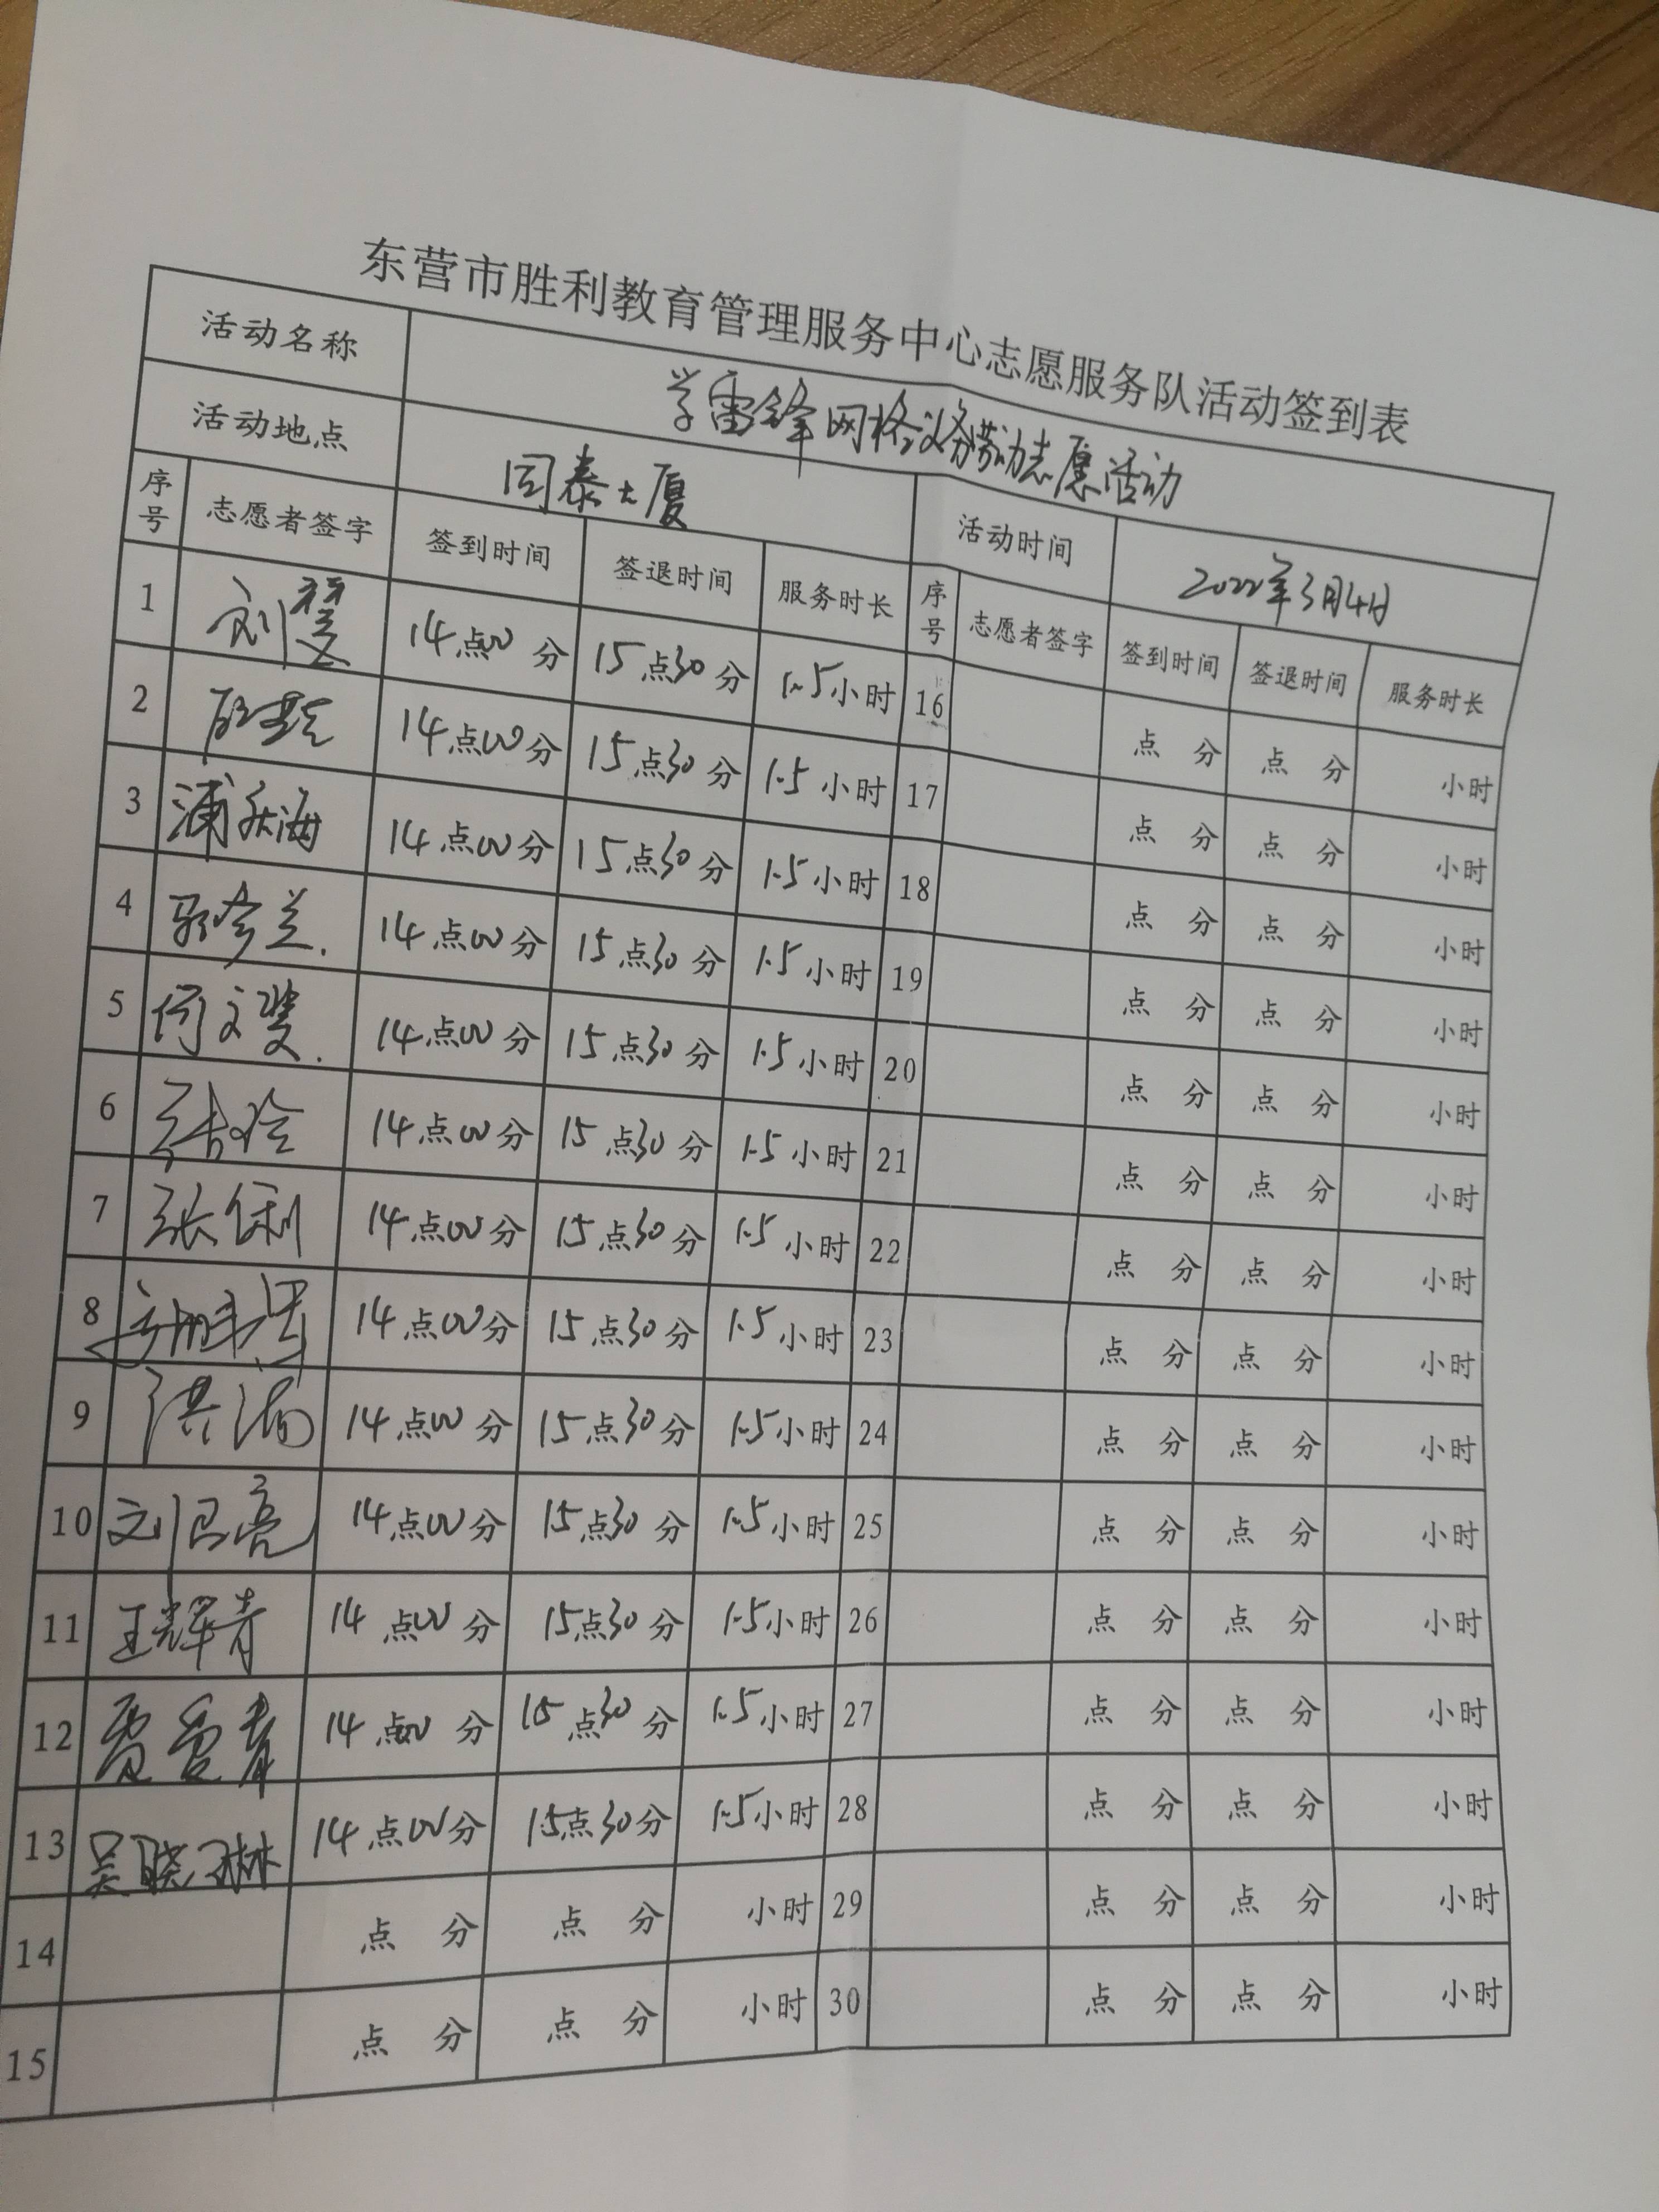 东营市胜利教育管理服务中心志愿服务队活动签到表
活动名称 学雷锋网格义务劳动志愿活动
活动地点 同泰大厦 活动时间 2022年3月4日
序号 志愿者签字 签到时间 签退时间 服务时长 序号 志愿者签字 签到时间 签退时间 服务时长
1 14点00分 15点30分 1.5小时 16 点 分 点 分 小时
2 14点00分 15点30分 1.5小时 17 点 分 点 分 小时
3 14点00分 15点30分 1.5小时 18 点 分 点 分 小时
4 14点00分 15点30分 1.5小时 19 点 分 点 分 小时
5 何文斐 14点00分 15点30分 1.5小时 20 点 分 点 分 小时
6 14点00分 15点30分 1.5小时 21 点 分 点 分 小时
7 张保利 14点00分 15点30分 1.5小时 22 点 分 点 分 小时
8 14点00分 15点30分 1.5小时 23 点 分 点 分 小时
9 洪涌 14点00分 15点30分 1.5小时 24 点 分 点 分 小时
10 刘卫亮 14点00分 15点30分 1.5小时 25 点 分 点 分 小时
11 王辉青 14点00分 15点30分 1.5小时 26 点 分 点 分 小时
12 贾爱春 14点00分 15点30分 1.5小时 27 点 分 点 分 小时
13 吴晓琳 14点00分 15点30分 1.5小时 28 点 分 点 分 小时
14 点 分 点 分 小时 29 点 分 点 分 小时
15 点 分 点 分 小时 30 点 分 点 分 小时